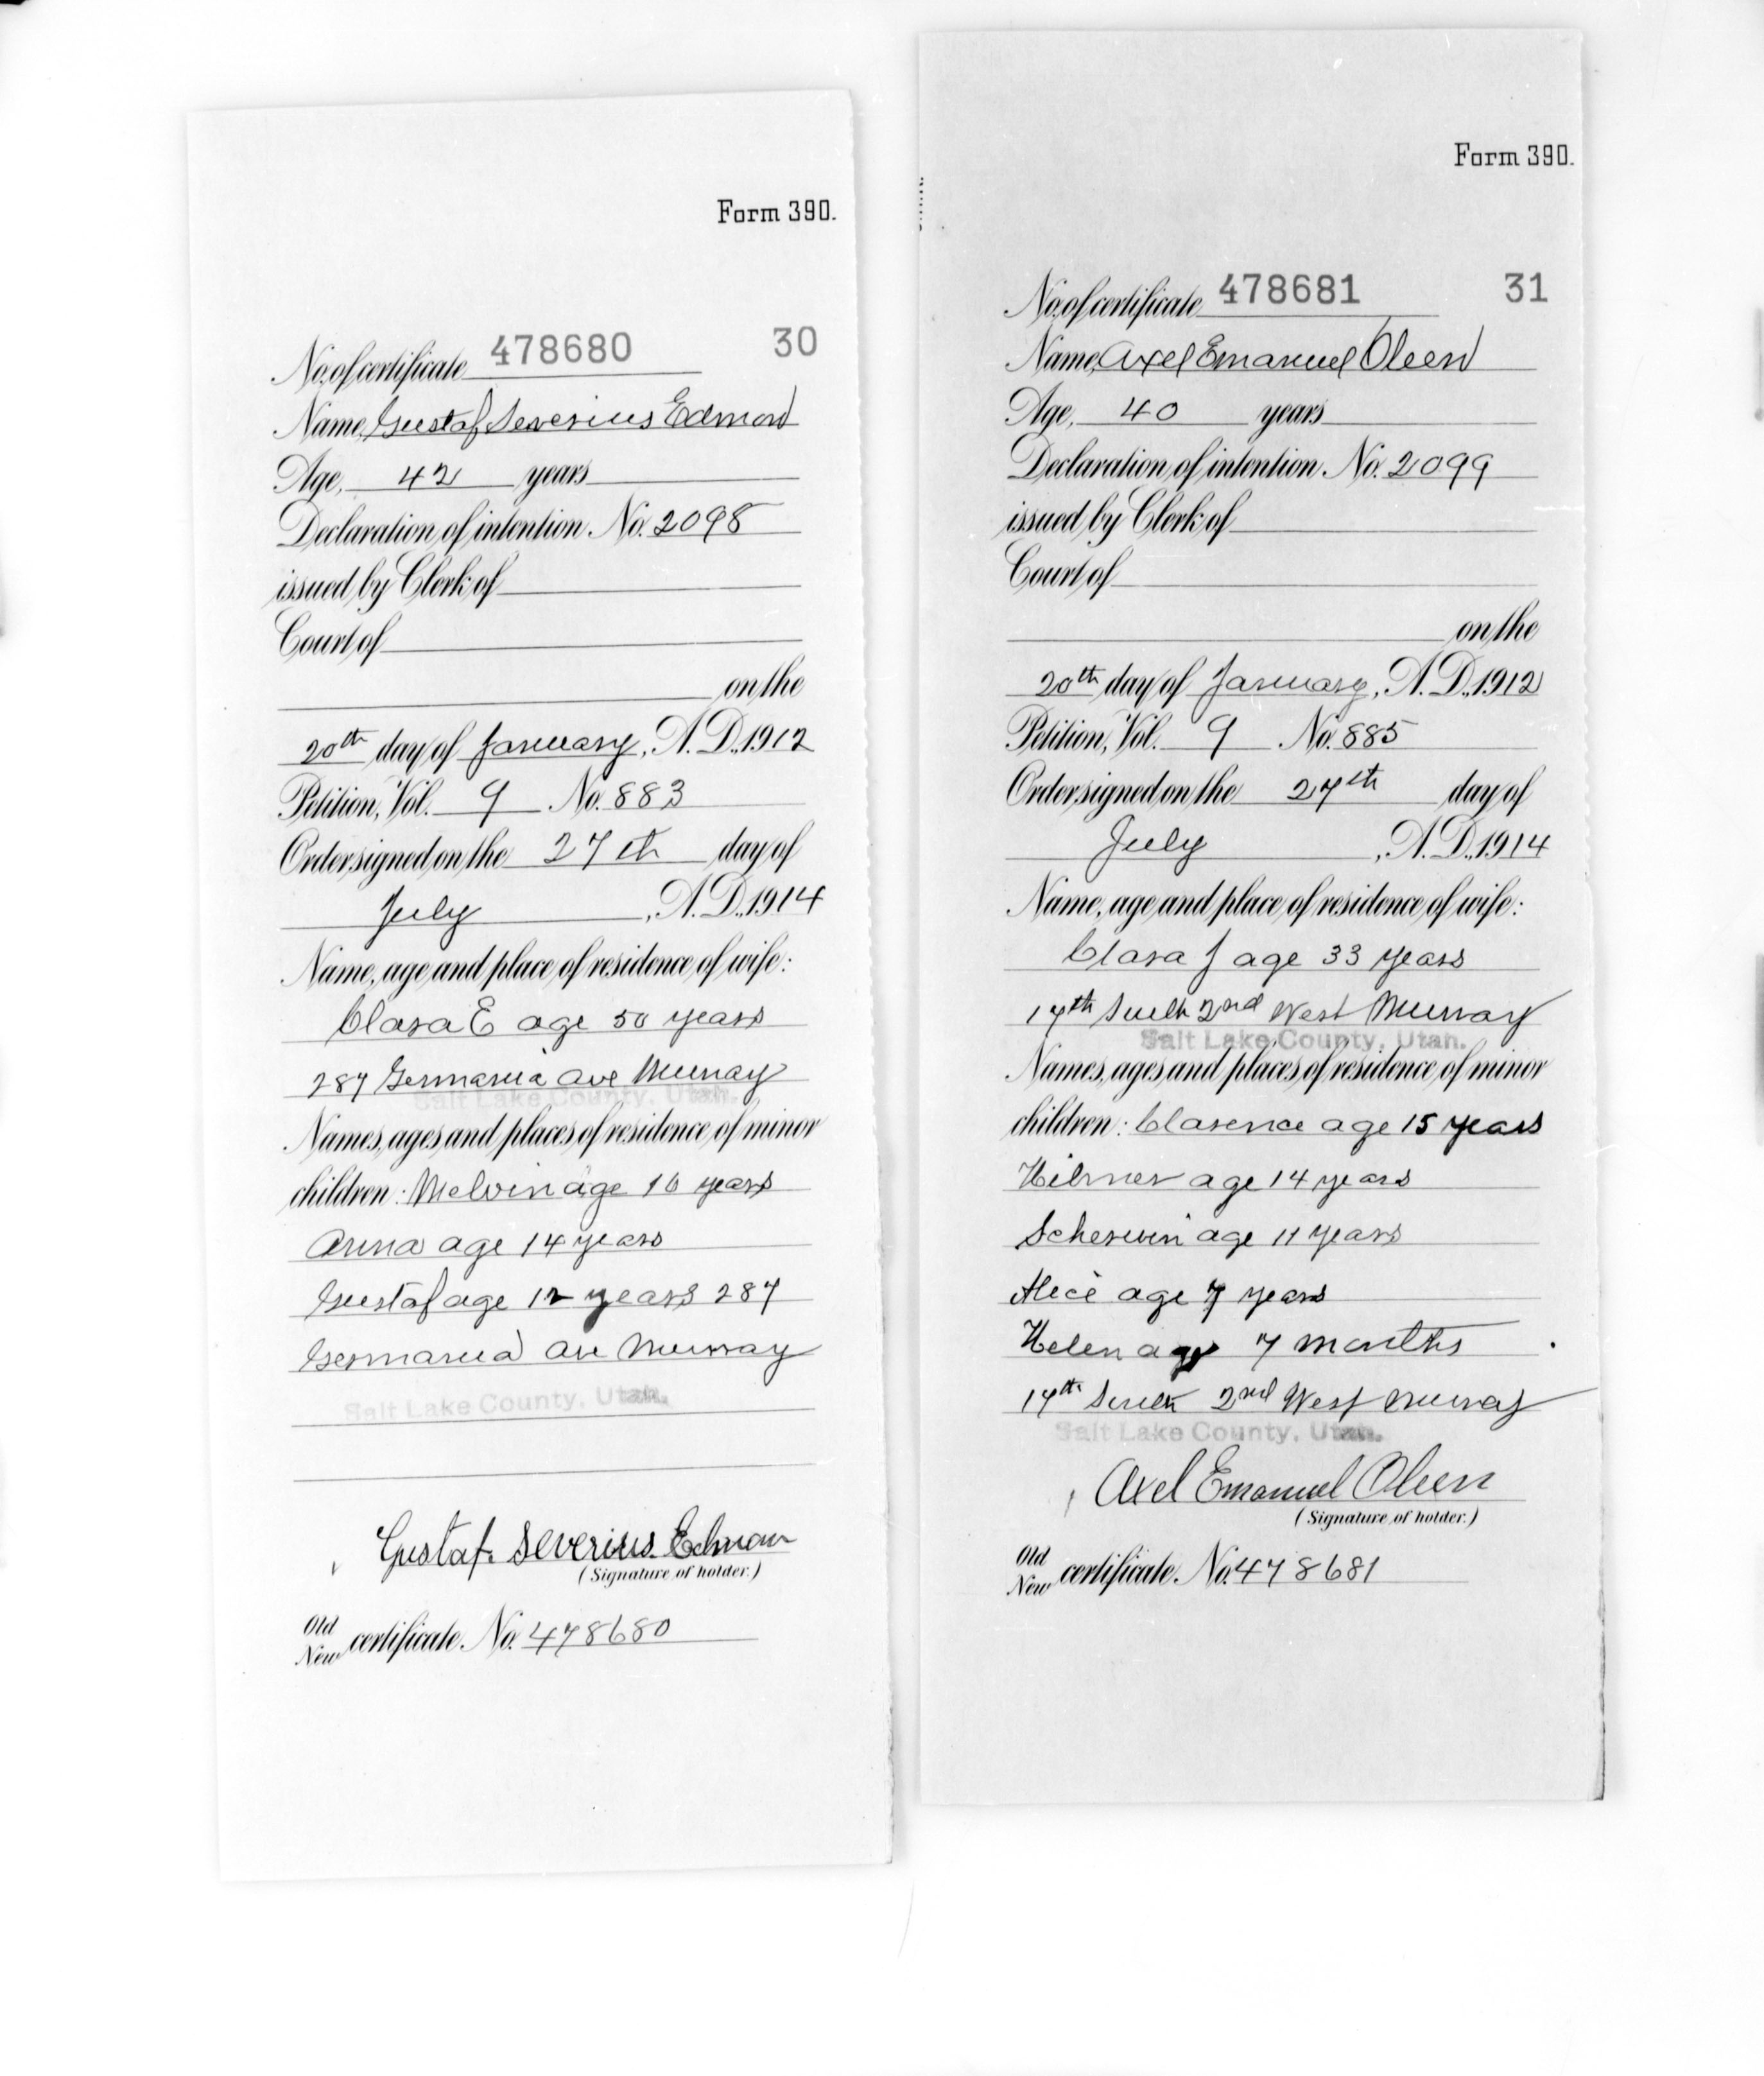 Form 390.
No. of certificate 478680 30
Name, Gustaf Severius Edman
Age, 42 years
Declaration of intention. No. 2098
issued by Clerk of
Court of
on the
20th day of January, A.D., 1912
Petition, Vol. 9 No. 883
Order signed on the 27th day of
July, A.D., 1914
Name, age and place of residence of wife:
Clara E age 50 years
287 Germania Ave Murray
Salt Lake County, Utah.
Names, ages and places of residence of minor
children: Melvin age 16 years
Anna age 14 years
Gustaf age 12 years 287
Germania Ave Murray
Salt Lake County, Utah.
Gustaf. Severius. Edman
(Signature of holder.)
Old
New certificate. No. 478680
Form 390.
No. of certificate 478681 31
Name, Axel Emanuel Oleen
Age, 40 years
Declaration of intention. No. 2099
issued by Clerk of
Court of
on the
20th day of January, A.D., 1912
Petition, Vol. 9 No. 885
Order signed on the 27th day of
July, A.D., 1914
Name, age and place of residence of wife:
Clara J age 33 years
17th South 2nd West Murray
Salt Lake County, Utah.
Names, ages and places of residence of minor
children: Clarence age 15 years
Hilmer age 14 years
Scherwin age 11 years
Alice age 7 years
Helen age 7 months
17th South 2nd West Murray
Salt Lake County, Utah.
Axel Emanuel Oleen
(Signature of holder.)
Old
New certificate. No. 478681